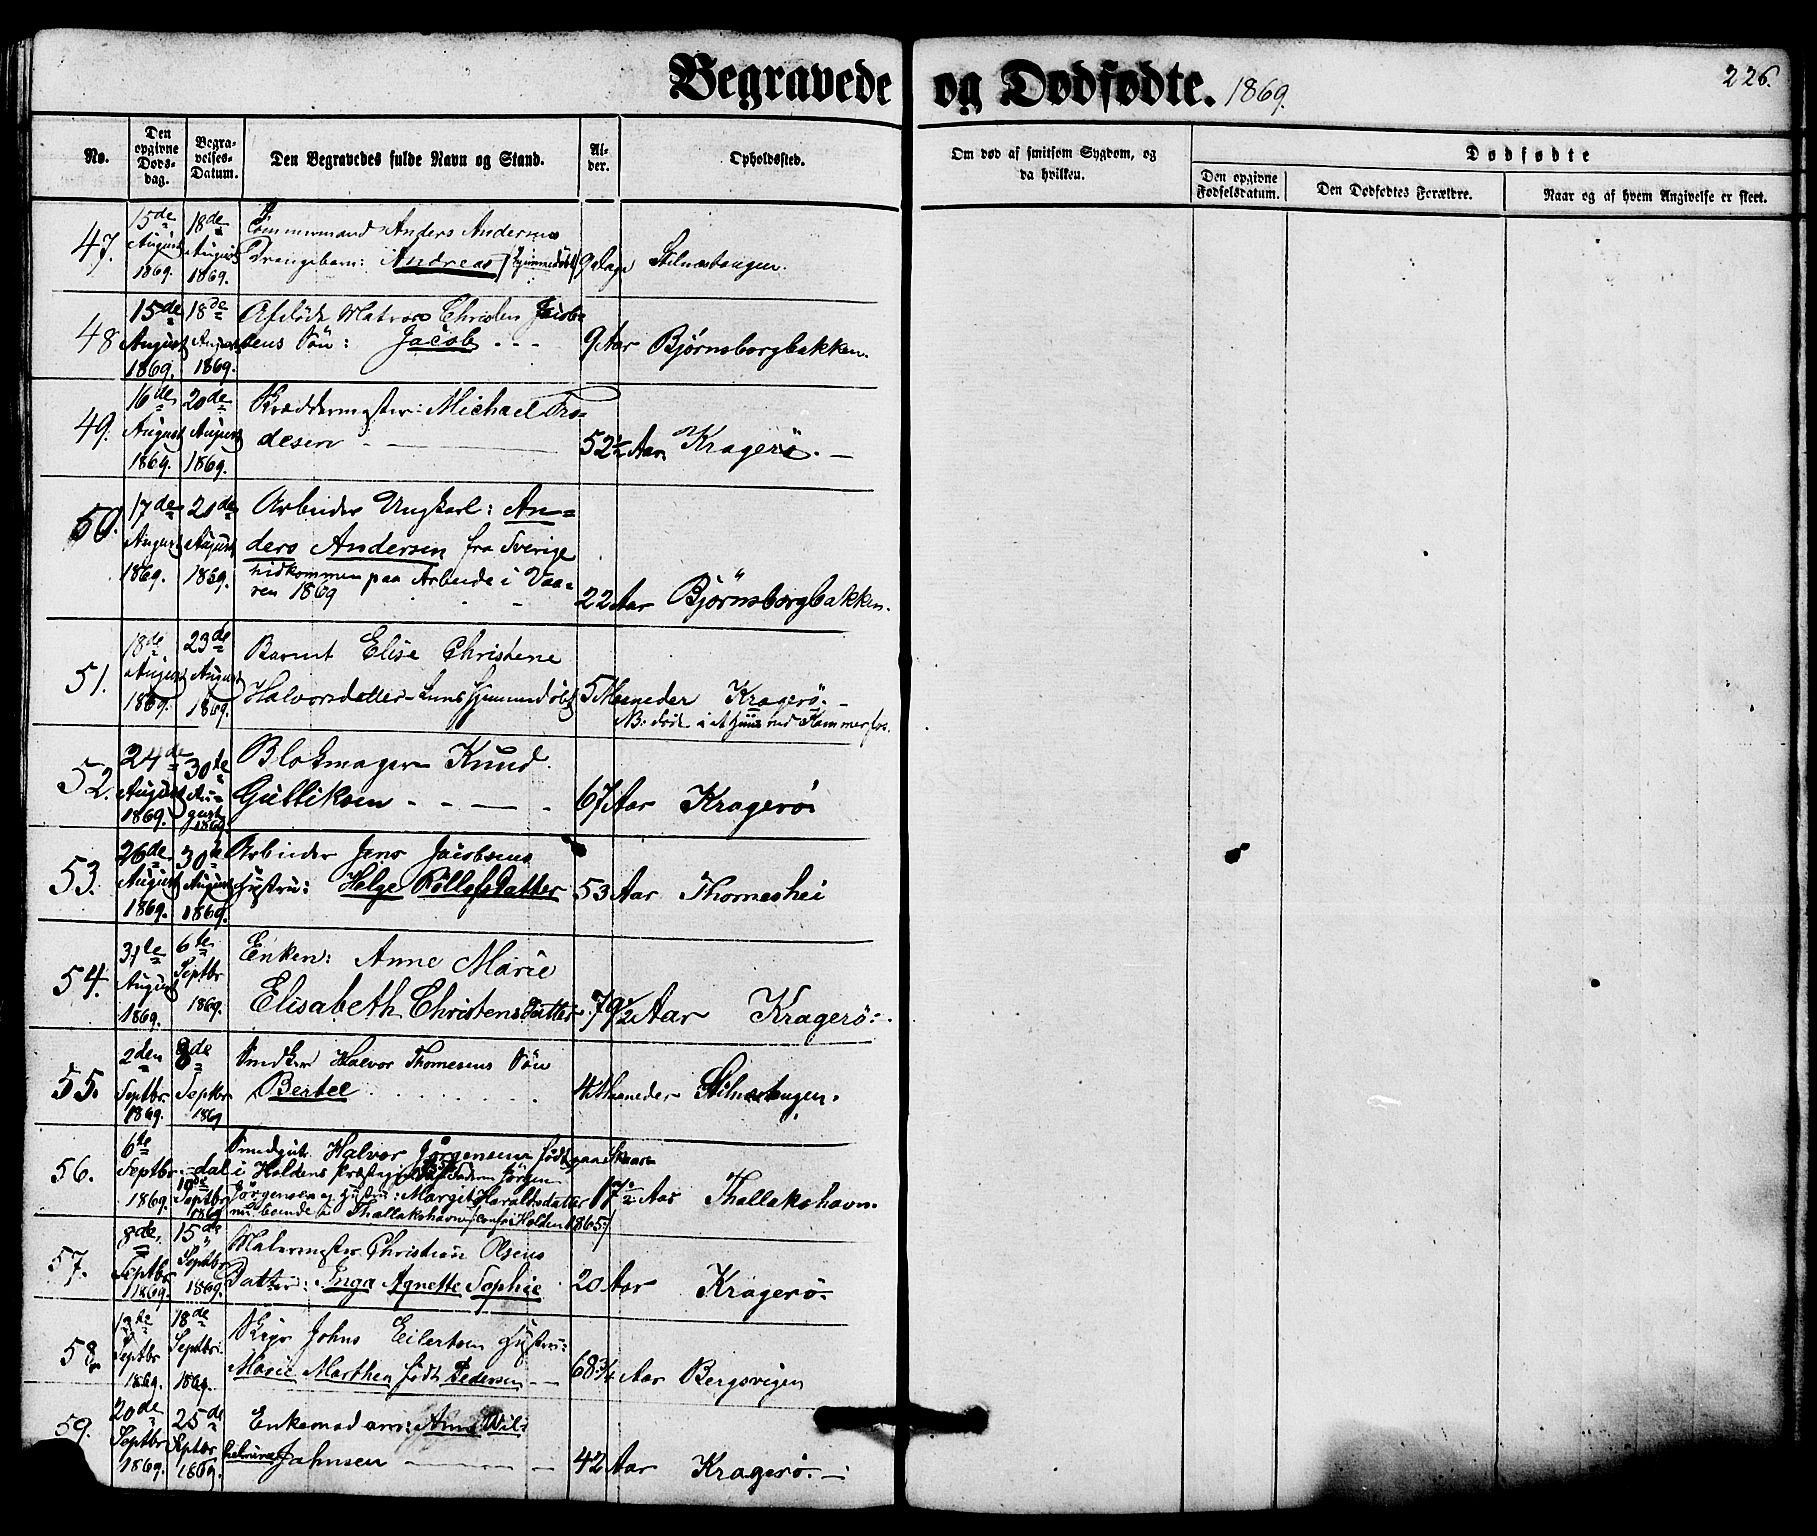 Begravede og Dødfødte. 1869. 226.
No. Den opgivne Døds-dag. Begra-velses-Datum. Den Begravedes fulde Navn og Stand. Al-der. Opholdssted. Om død af smitsom Sygdom, og da hvilken. Dødfødte
Den opgivne Fødselsdatum. Den Dødfødtes Forældre. Naar og af hvem Angivelse er skeet.
47. 15de August 1869. 18de August 1869. Tømmermand Anders Andersens
Drengebarn: Andreas (hjemmedøbt) 9 Dage Stilnestangen.
48 15de August 1869. 18de August 1869. Afdøde Matros Christen Jacob-
sens Søn: Jacob 9 Aar Bjørnsborgbakken.
49. 16de August 1869. 20de August 1869. Skræddermester: Michael Tro-
desen 52½ Aar Kragerö.
50. 17de August 1869. 21de August 1869. Arbeider Ungkarl: An-
ders Andersen fra Sverige
hidkommen paa Arbeide i Vaa-
ren 1869 22 Aar Bjørnsborgbakken.
51. 18de August 1869. 23de August 1869. Barnet Elise Christene
Halvorsdatter hjemmedøbt 5 Maaneder Kragerö.
NB. død i et Huus ved Kammerfos.
52. 24de August 1869. 30te August 1869. Blokmager Knud
Gulliksen 67 Aar Kragerö
53. 26de August 1869. 30te August 1869. Arbeider Jens Jacobsens
Hustru: Helge Rollefsdatter 53 Aar Thomeshei
54. 31te August 1869. 6te Septbr 1869. Enken: Anne Marie
Elisabeth Christensdatter 79½ Aar Kragerö.
55. 2den Septbr 1869. 8de Septbr 1869 Snedker Halvor Thomesens Søn
Bertel 4 Maaneder Stilnestangen.
56. 6te Septbr 1869. 10de Septbr 1869 Smedgut Halvor Jørgensen født paa Skaar-
dal i Holdens Præstegjeld af Fader Jörgen
Jörgensen og Hustru: Margit Haraldsdatter 17½ Aar Thallakshavn.
nu boende i Thallakshavn (conf. i Holden 1865)
57. 8de Septbr 1869. 15de Septbr 1869. Malermester Christian Olsens
Datter: Inga Agnette Sophie 20 Aar Kragerö.
58. 12te Septbr 1869. 18de Septbr. 1869. Skipr Johns Eilertsen Hustru:
Marie Marthea født Pedersen 68¾ Aar Bergsvigen
59. 20de Septbr 1869. 25de Septbr 1869. Enkemadam: Anne Wil-
helmine Jahnsen 42 Aar Kragerö.